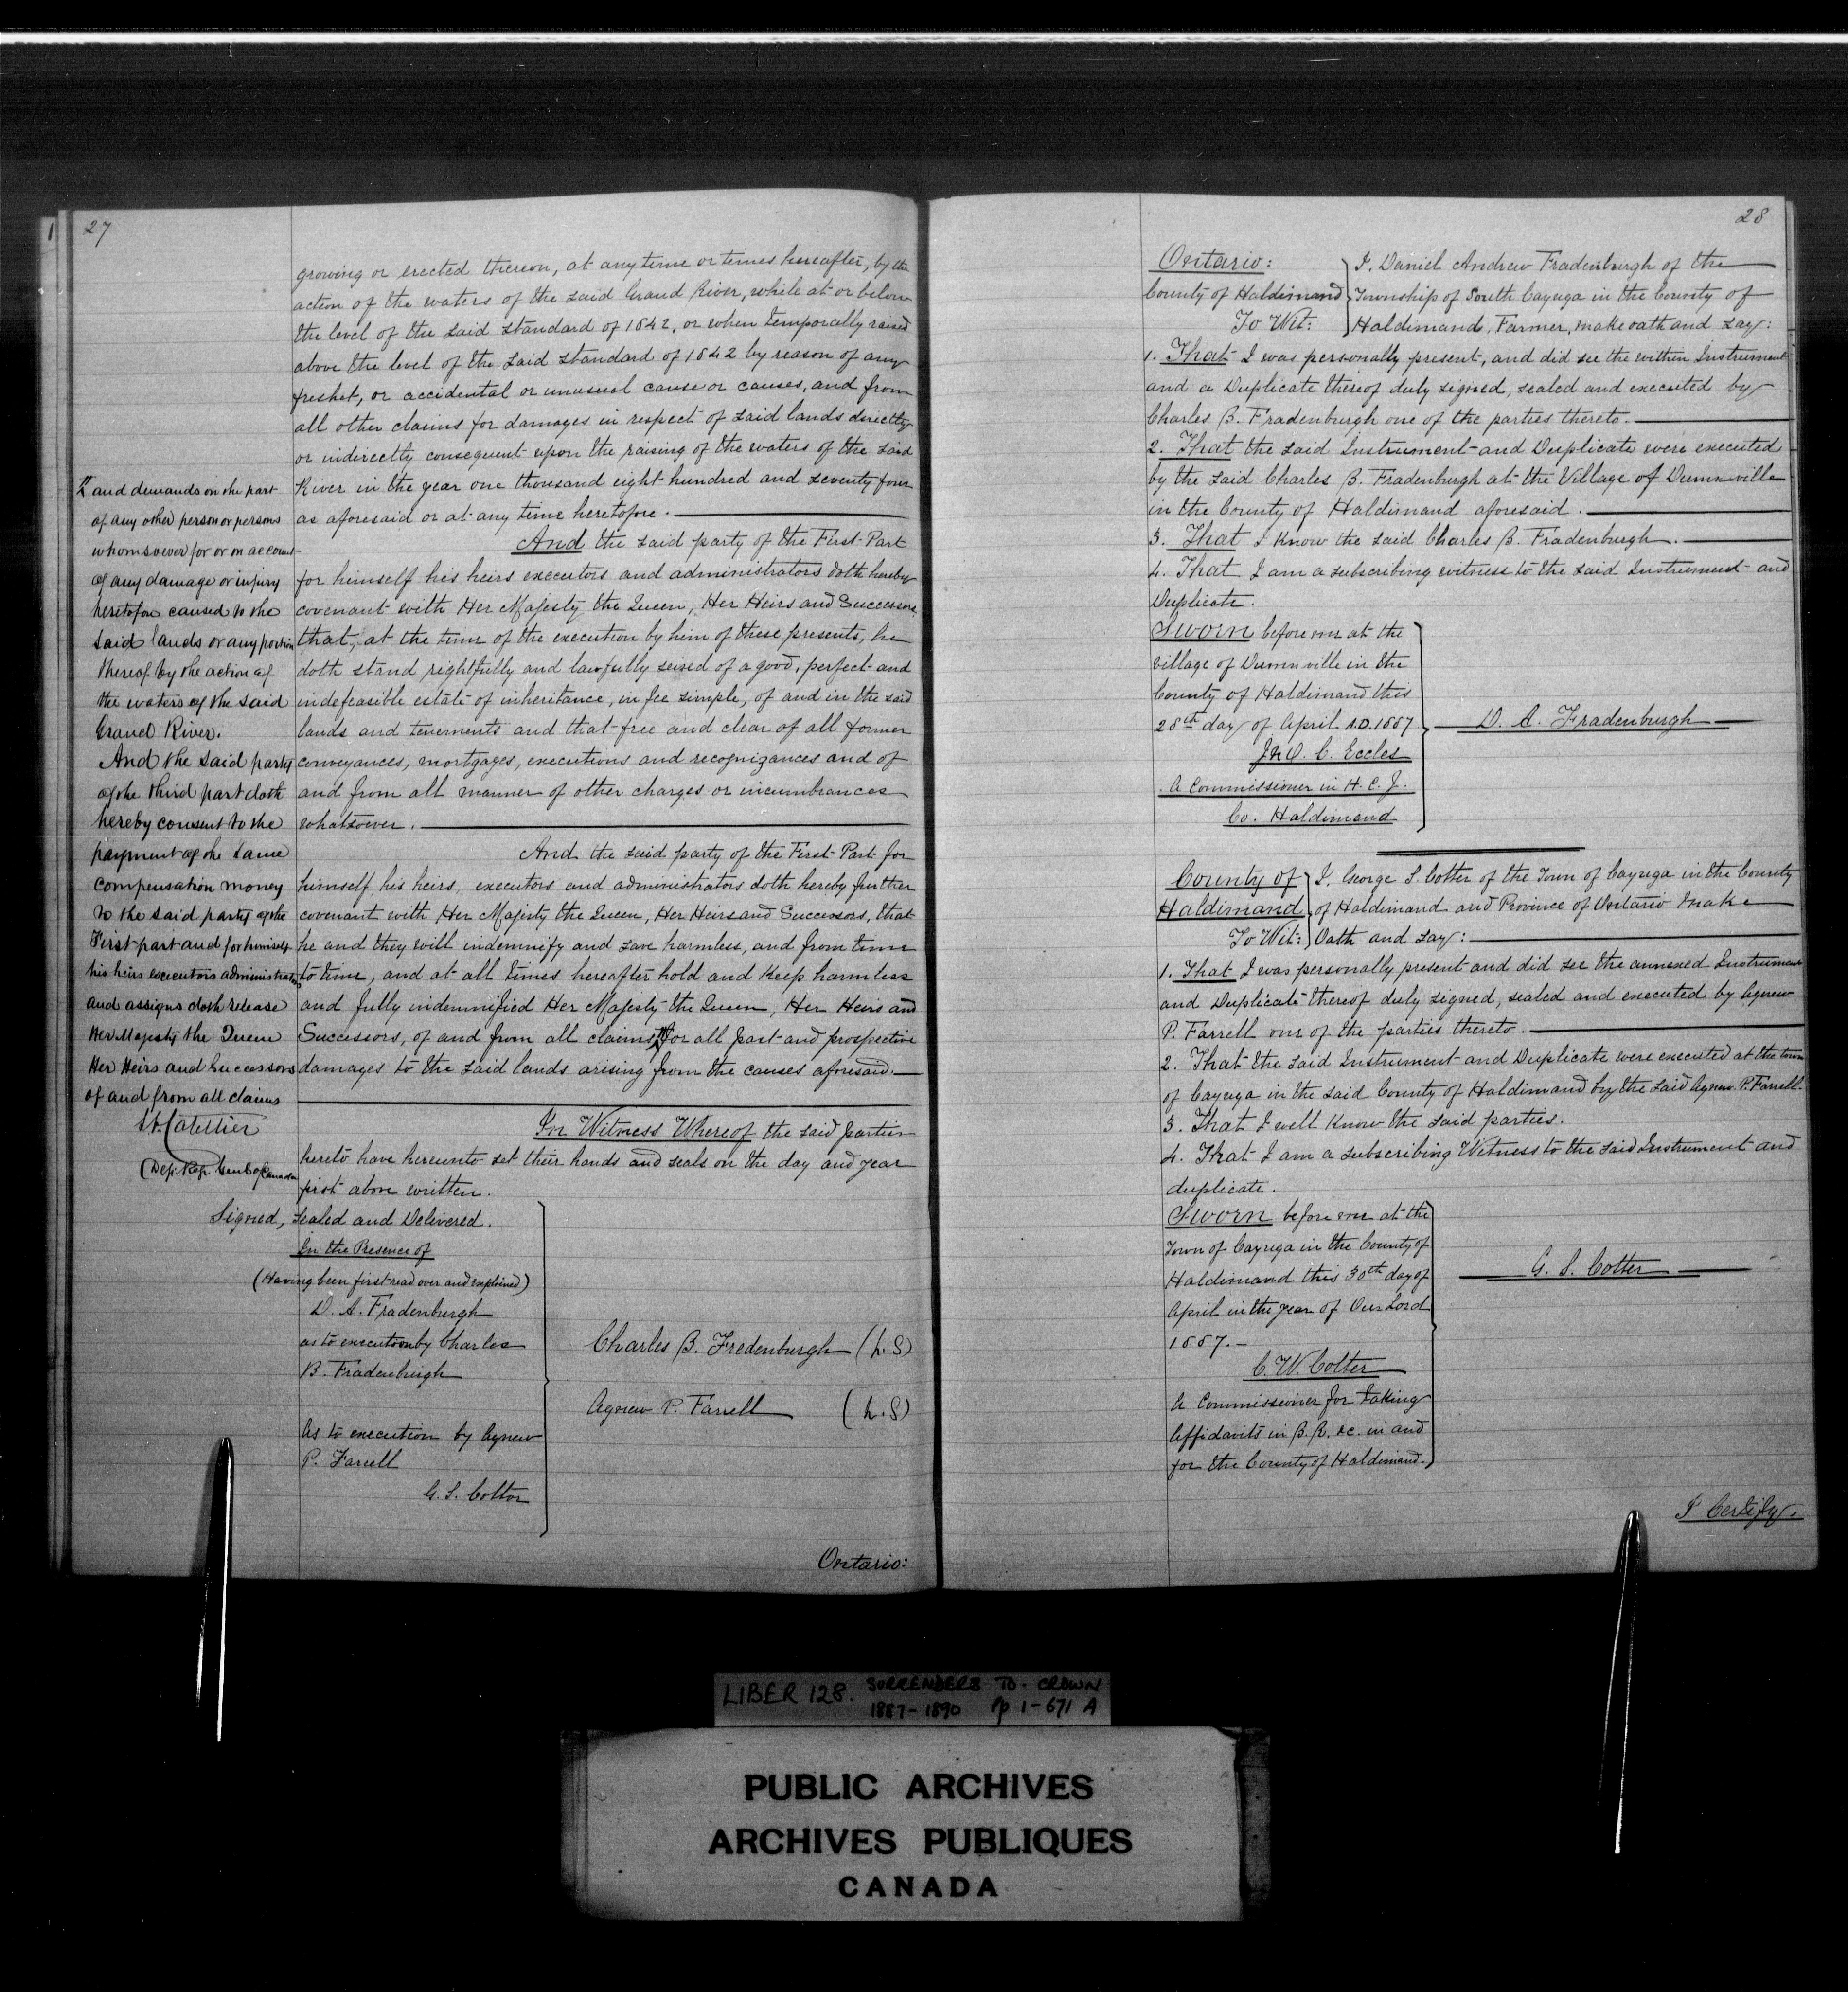 27
growing or erected thereon, at any time or times hereafter, by the
action of the waters of the said Grand River, while at or below
the level of the said standard of 1842, or when temporally raised
above the level of the said standard of 1842 by reason of any
freshet, or accidental or unusual cause or causes, and from
all other claims for damages in respect of said lands directly
or indirectly consequent upon the raising of the waters of the said
River in the year one thousand eight hundred and seventy four
as aforesaid or at any time heretofore.
And the said party of the First Part
for himself his heirs executors and administrators doth hereby
covenant with Her Majesty the Queen, Her Heirs and Successors,
that, at the time of the execution by him of these presents, he
doth stand rightfully and lawfully seised of a good, perfect and
indefeasible estate of inheritance, in fee simple, of and in the said
lands and tenements and that free and clear of all former
conveyances, mortgages, executions and recognizances and of
and from all manner of other charges or incumbrances
whatsoever.
And the said party of the First Part for
himself, his heirs, executors and administrators doth hereby further
covenant with Her Majesty the Queen, Her Heirs and Successors, that
he and they will indemnify and save harmless, and from time
to time, and at all times hereafter hold and keep harmless
and fully indemnified Her Majesty the Queen, Her Heirs and
Successors, of and from all claims for all past and prospective
damages to the said lands arising from the causes aforesaid.
In Witness Whereof the said parties
hereto have hereunto set their hands and seals on the day and year
first above written.
and demands on the part
of any other person or persons
whomsoever for or on account
of any damage or injury
heretofore caused to the
said lands or any portion
thereof by the action of
the waters of the said
Grand River.
And the said party
of the third part doth
hereby consent to the
payment of the same
compensation money
to the said party of the
First part and for himself
his heirs executors administrators
and assigns doth release
Her Majesty the Queen
Her Heirs and Successors
of and from all claims
Dep. Reg. Genl of Canada
Signed, Sealed and Delivered.
In the Presence of
(Having been first read over and explained)
D. A. Fradenburgh
as to execution by Charles
B. Fradenburgh
Charles B. Fredenburgh (L.S)
Agnew P. Farrell (L.S)
As to execution by Agnew
P. Farrell
G. S. Cotter
Ontario:
28
Ontario:
County of Haldimand
To Wit:
I, Daniel Andrew Fradenburgh of the
Township of South Cayuga in the County of
Haldimand, Farmer, make oath and say:
1. That I was personally present, and did see the within Instrument
and a Duplicate thereof duly signed, sealed and executed by
Charles B. Fradenburgh one of the parties thereto.
2. That the said Instrument and Duplicate were executed
by the said Charles B. Fradenburgh at the Village of Dunnville
in the County of Haldimand aforesaid.
3. That I know the said Charles B. Fradenburgh.
4. That I am a subscribing witness to the said Instrument and
Duplicate.
Sworn before me at the
village of Dunnville in the
County of Haldimand this
28th day of April A.D. 1887
D. A. Fradenburgh
Jno. C. Eccles
A Commissioner in H. C. J.
Co. Haldimand
County of
Haldimand
To Wit:
I, George S. Cotter of the Town of Cayuga in the County
of Haldimand and Province of Ontario make
Oath and say:
1. That I was personally present and did see the annexed Instrument
and Duplicate thereof duly signed, sealed and executed by Agnew
P. Farrell one of the parties thereto.
2. That the said Instrument and Duplicate were executed at the town
of Cayuga in the said County of Haldimand by the said Agnew P. Farrell.
3. That I well know the said parties.
4. That I am a subscribing Witness to the said Instrument and
duplicate.
Sworn before me at the
Town of Cayuga in the County of
Haldimand this 30th day of
April in the year of Our Lord
1887.
G. S. Cotter
C. W. Colter
A Commissioner for taking
Affidavits in B. R. &c. in and
for the County of Haldimand.
I Certify.
LIBER 128. SURRENDERS TO CROWN
1887-1890 pp 1-671 A
PUBLIC ARCHIVES
ARCHIVES PUBLIQUES
CANADA